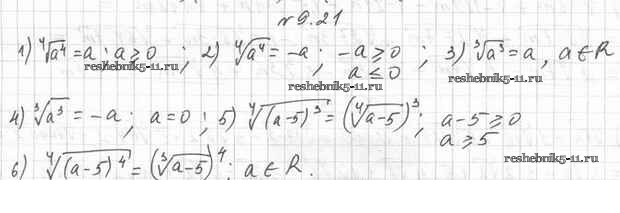 № 9.21
1) ⁴√a⁴ = a ; a ≥ 0 ; 2) ⁴√a⁴ = -a ; -a ≥ 0 ; 3) ³√a³ = a , a ∈ R
reshebnik5-11.ru a ≤ 0
reshebnik5-11.ru
4) ³√a³ = -a ; a = 0 ; 5) ⁴√(a-5)³ = (⁴√a-5)³ ; a-5 ≥ 0
a ≥ 5
reshebnik5-11.ru
6) ⁴√(a-5)⁴ = (³√a-5)⁴ ; a ∈ R.
reshebnik5-11.ru